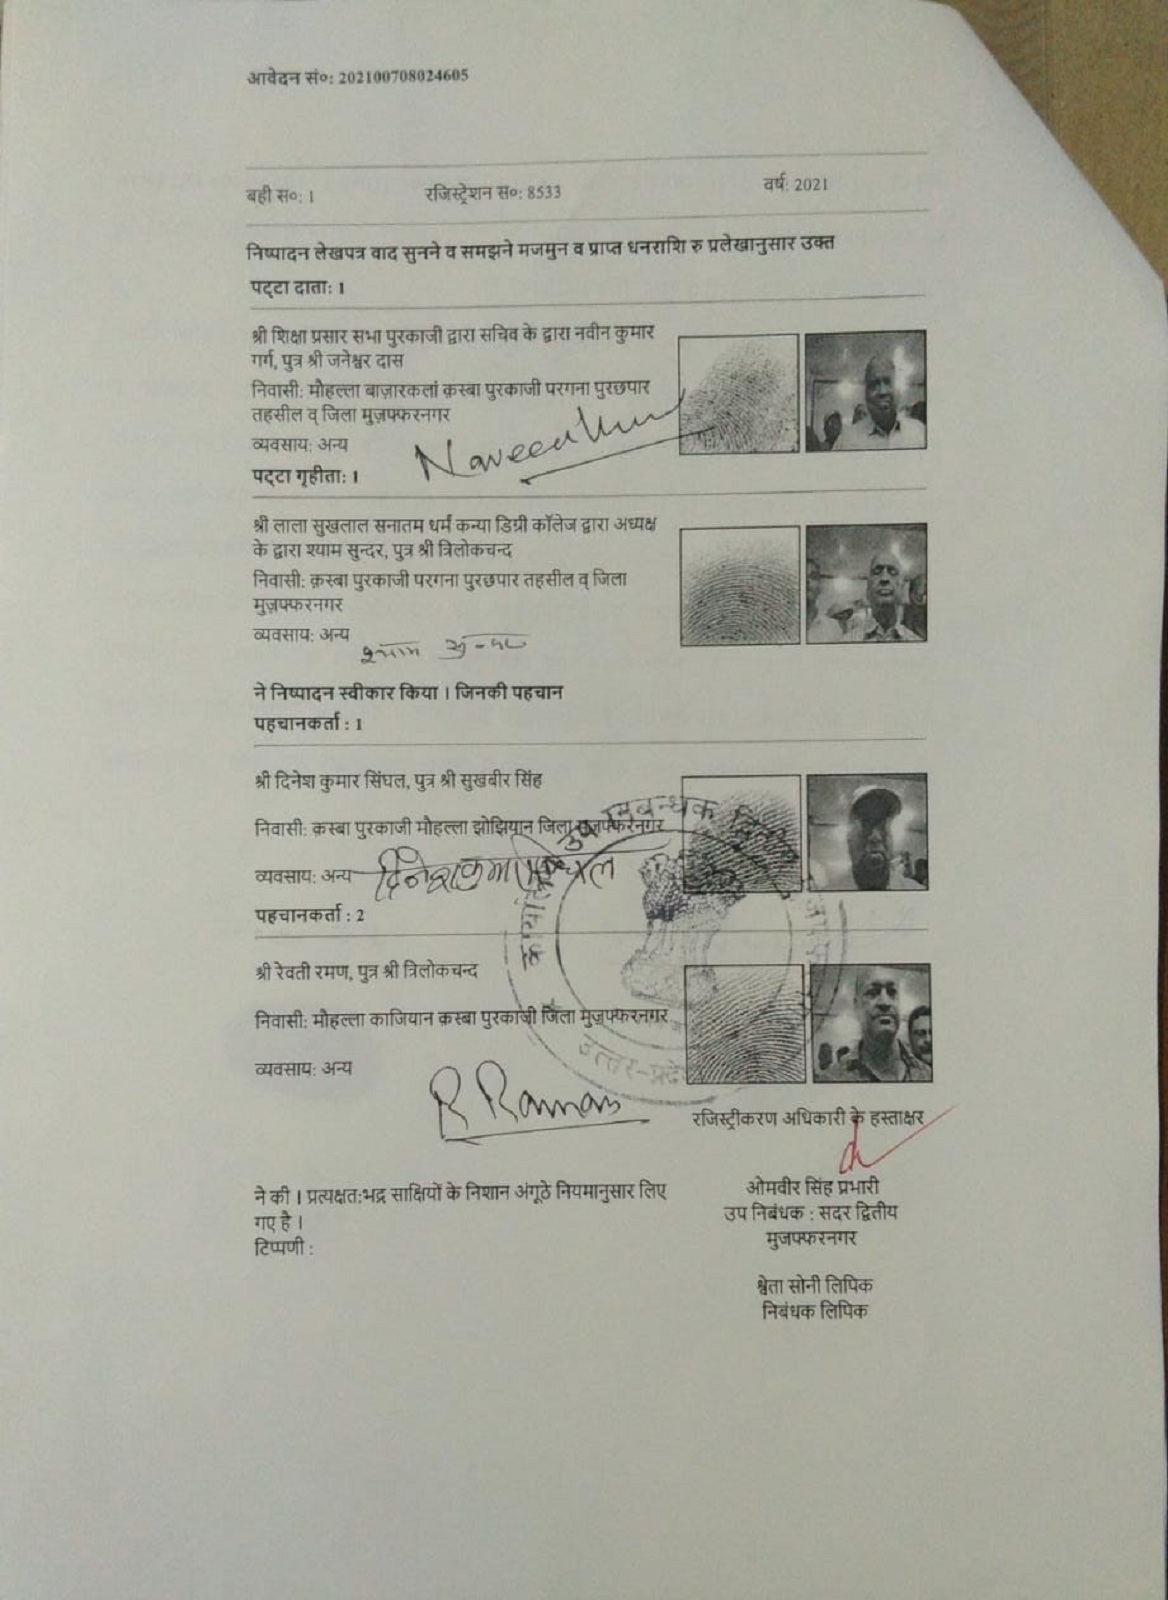 आवेदन सं०: 202100708024605
बही स०: 1 रजिस्ट्रेशन स०: 8533 वर्ष: 2021
निष्पादन लेखपत्र वाद सुनने व समझने मजमुन व प्राप्त धनराशि रु प्रलेखानुसार उक्त
पट्टा दाता: 1
श्री शिक्षा प्रसार सभा पुरकाजी द्वारा सचिव के द्वारा नवीन कुमार
गर्ग, पुत्र श्री जनेश्वर दास
निवासी: मौहल्ला बाज़ारकलां क़स्बा पुरकाजी परगना पुरछपार
तहसील व् जिला मुज़फ्फरनगर
व्यवसाय: अन्य
Naveen Kumar
पट्टा गृहीता: 1
श्री लाला सुखलाल सनातम धर्म कन्या डिग्री कॉलेज द्वारा अध्यक्ष
के द्वारा श्याम सुन्दर, पुत्र श्री त्रिलोकचन्द
निवासी: क़स्बा पुरकाजी परगना पुरछपार तहसील व् जिला
मुज़फ्फरनगर
व्यवसाय: अन्य
श्याम सुन्दर
ने निष्पादन स्वीकार किया । जिनकी पहचान
पहचानकर्ता : 1
श्री दिनेश कुमार सिंघल, पुत्र श्री सुखबीर सिंह
निवासी: क़स्बा पुरकाजी मौहल्ला झोझियान जिला मुज़फ्फरनगर
व्यवसाय: अन्य
दिनेश कुमार सिंघल
पहचानकर्ता : 2
श्री रेवती रमण, पुत्र श्री त्रिलोकचन्द
निवासी: मौहल्ला काजियान क़स्बा पुरकाजी जिला मुज़फ्फरनगर
व्यवसाय: अन्य
R Raman
उत्तर-प्रदेश
रजिस्ट्रीकरण अधिकारी के हस्ताक्षर
ने की । प्रत्यक्षत:भद्र साक्षियों के निशान अंगूठे नियमानुसार लिए
गए है ।
टिप्पणी :
ओमवीर सिंह प्रभारी
उप निबंधक : सदर द्वितीय
मुजफ्फरनगर
श्वेता सोनी लिपिक
निबंधक लिपिक